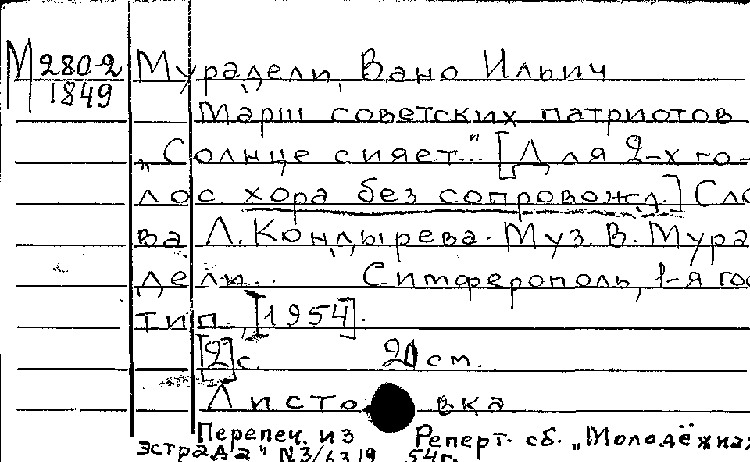 М 280-2
1849
Мурадели, Вано Ильич
Марш советских патриотов
„Солнце сияет..." [Для 2-х го-
лос хора без сопровожд.] Сло
ва Л. Кондырева. Муз. В. Мура
дели... Симферополь, 1-я гос
тип., [1954].
[2] с. 20 см.
Листовка
Перепеч. из Реперт. сб. „Молодёжная
эстрада" 54г.